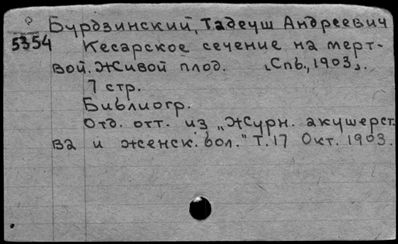 Бурдзинский, Тадеуш Андреевич
5354
Кесарское сечение на мерт-
вой. Живой плод. [Спб., 1903].
7 стр.
Библиогр.
Отд. отт. из „Журн. акушерст.
ва и женск. бол." Т. 17 Окт. 1903.